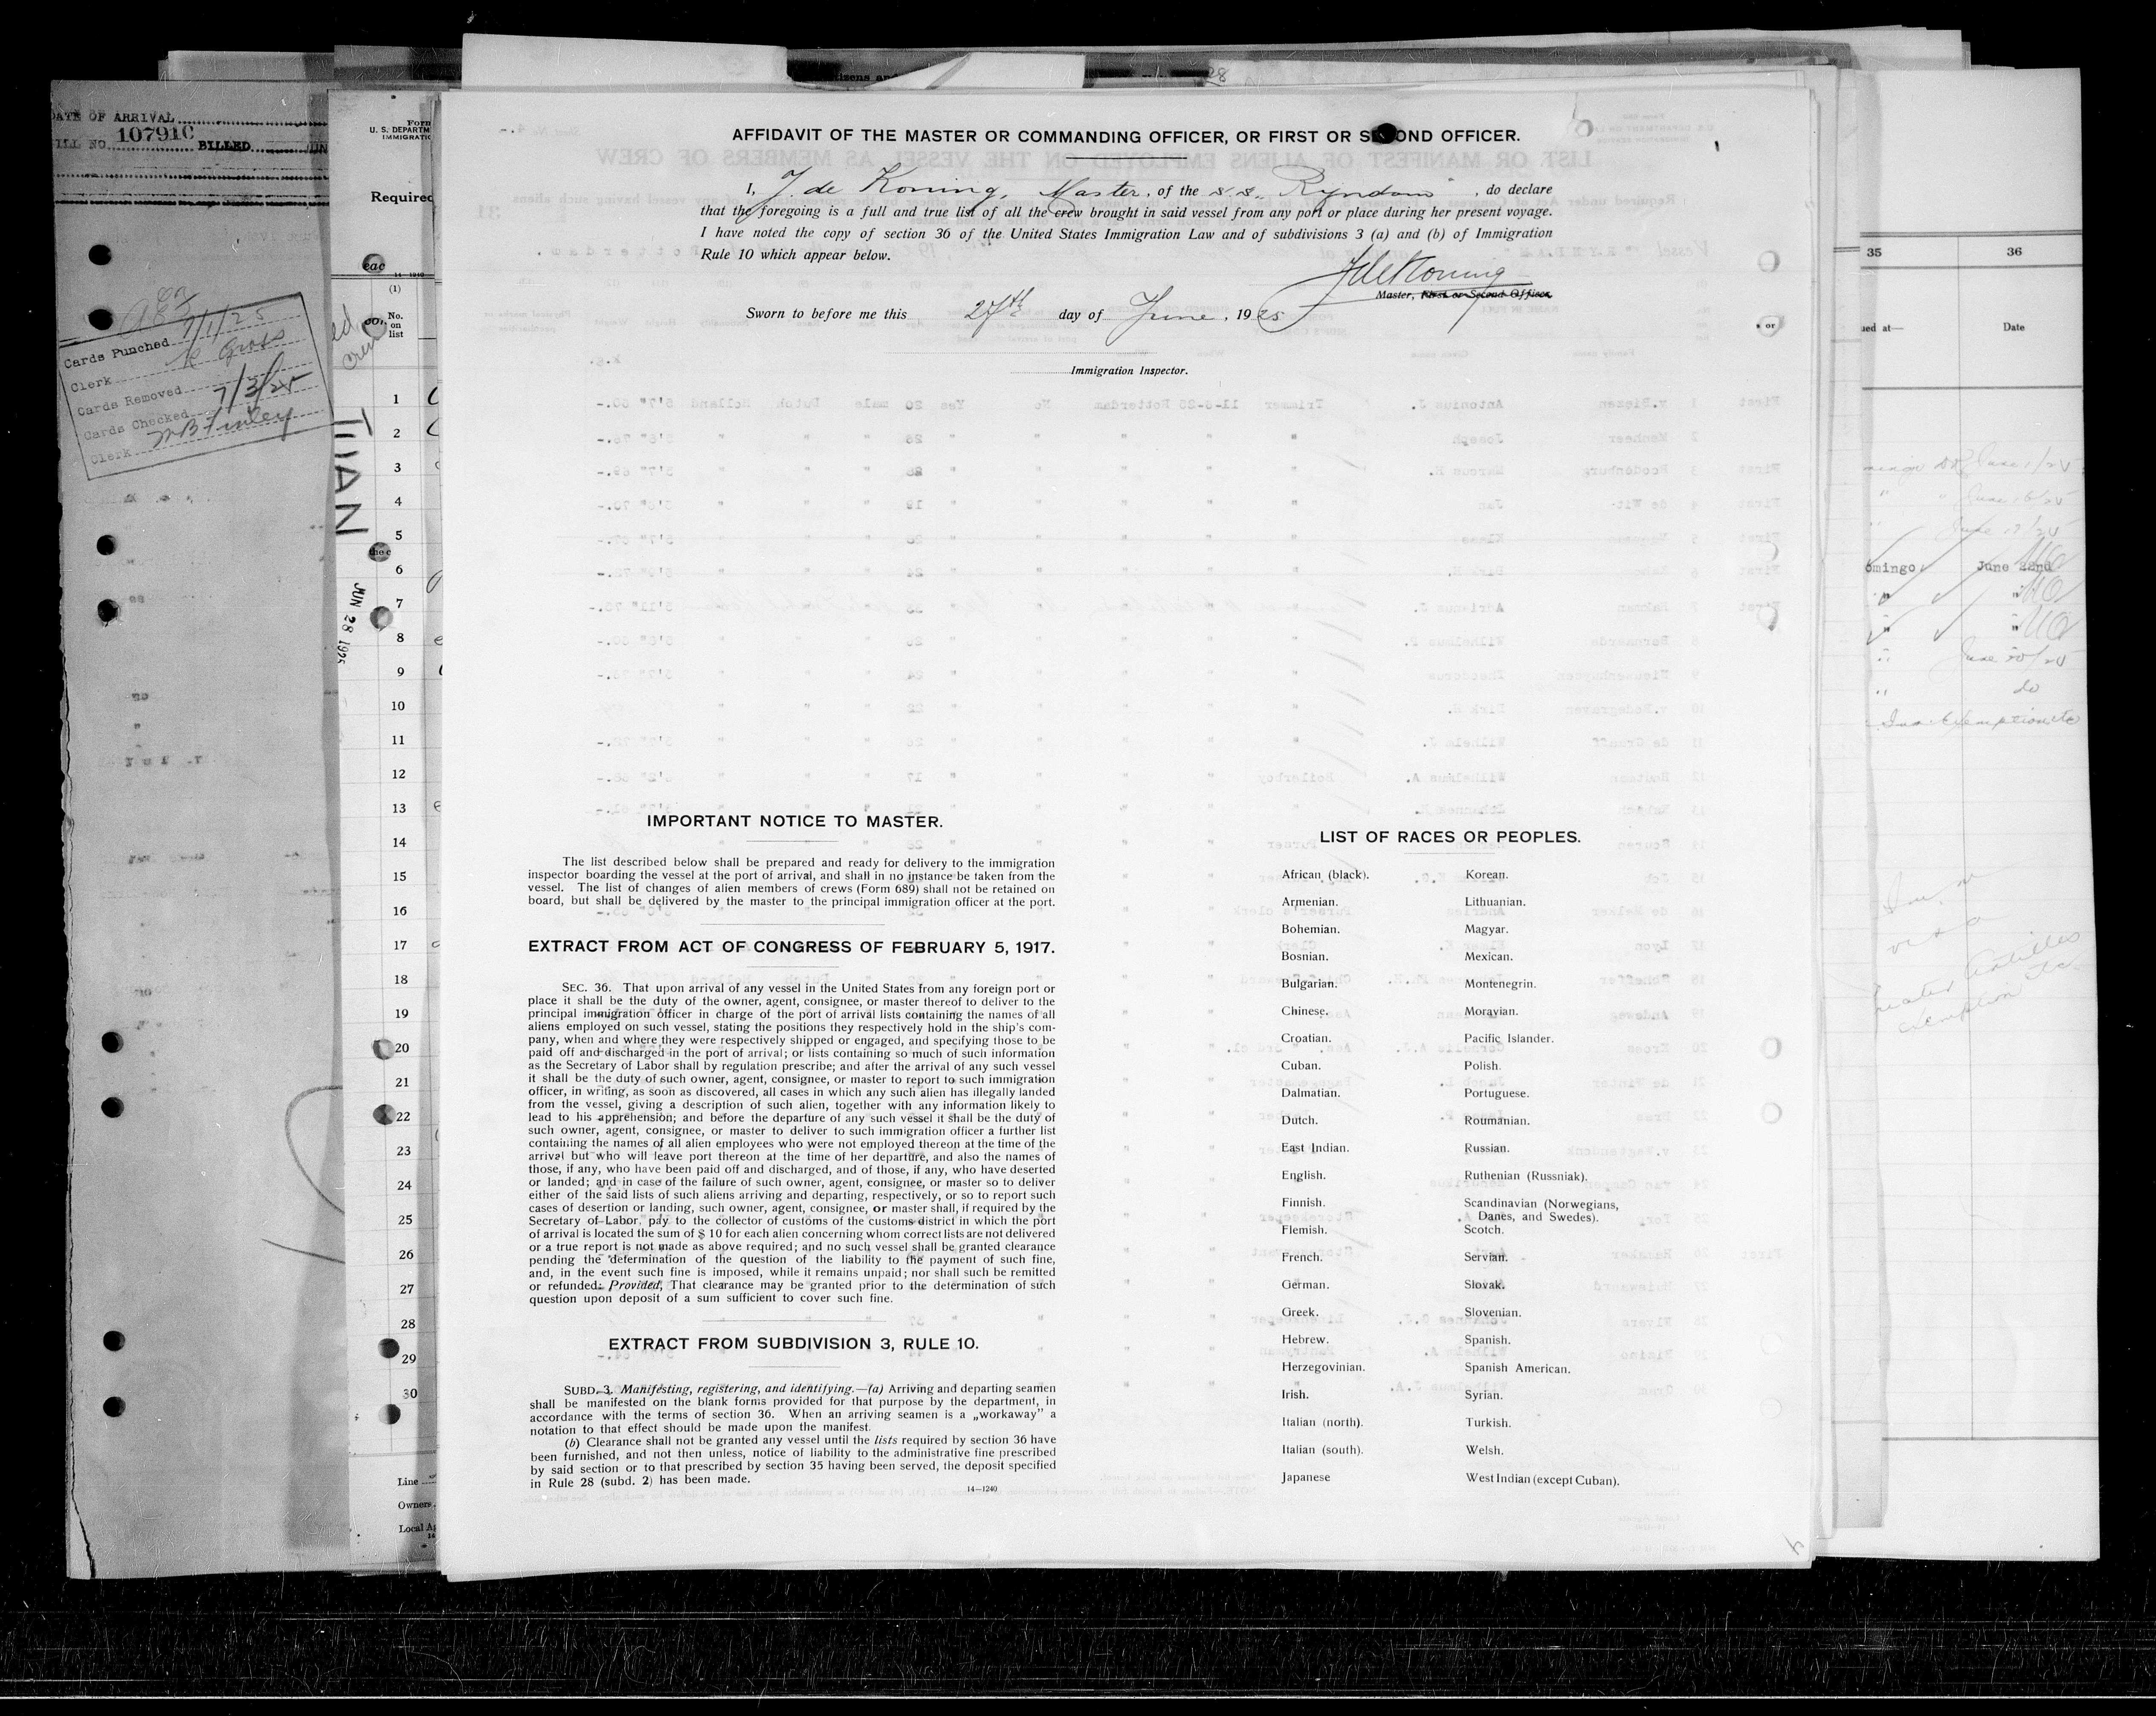 AFFIDAVIT OF THE MASTER OR COMMANDING OFFICER, OR FIRST OR SECOND OFFICER.
I, J de Koning, Master, of the s.s. "Ryndam", do declare
that the foregoing is a full and true list of all the crew brought in said vessel from any port or place during her present voyage.
I have noted the copy of section 36 of the United States Immigration Law and of subdivisions 3 (a) and (b) of Immigration
Rule 10 which appear below.
JdeKoning
Master, First or Second Officer.
Sworn to before me this 27th day of June, 1925
Immigration Inspector.
IMPORTANT NOTICE TO MASTER.
The list described below shall be prepared and ready for delivery to the immigration
inspector boarding the vessel at the port of arrival, and shall in no instance be taken from the
vessel. The list of changes of alien members of crews (Form 689) shall not be retained on
board, but shall be delivered by the master to the principal immigration officer at the port.
EXTRACT FROM ACT OF CONGRESS OF FEBRUARY 5, 1917.
SEC. 36. That upon arrival of any vessel in the United States from any foreign port or
place it shall be the duty of the owner, agent, consignee, or master thereof to deliver to the
principal immigration officer in charge of the port of arrival lists containing the names of all
aliens employed on such vessel, stating the positions they respectively hold in the ship's com-
pany, when and where they were respectively shipped or engaged, and specifying those to be
paid off and discharged in the port of arrival; or lists containing so much of such information
as the Secretary of Labor shall by regulation prescribe; and after the arrival of any such vessel
it shall be the duty of such owner, agent, consignee, or master to report to such immigration
officer, in writing, as soon as discovered, all cases in which any such alien has illegally landed
from the vessel, giving a description of such alien, together with any information likely to
lead to his apprehension; and before the departure of any such vessel it shall be the duty of
such owner, agent, consignee, or master to deliver to such immigration officer a further list
containing the names of all alien employees who were not employed thereon at the time of the
arrival but who will leave port thereon at the time of her departure, and also the names of
those, if any, who have been paid off and discharged, and of those, if any, who have deserted
or landed; and in case of the failure of such owner, agent, consignee, or master so to deliver
either of the said lists of such aliens arriving and departing, respectively, or so to report such
cases of desertion or landing, such owner, agent, consignee, or master shall, if required by the
Secretary of Labor, pay to the collector of customs of the customs district in which the port
of arrival is located the sum of $ 10 for each alien concerning whom correct lists are not delivered
or a true report is not made as above required; and no such vessel shall be granted clearance
pending the determination of the question of the liability to the payment of such fine,
and, in the event such fine is imposed, while it remains unpaid; nor shall such be remitted
or refunded: Provided, That clearance may be granted prior to the determination of such
question upon deposit of a sum sufficient to cover such fine.
EXTRACT FROM SUBDIVISION 3, RULE 10.
SUBD. 3. Manifesting, registering, and identifying.—(a) Arriving and departing seamen
shall be manifested on the blank forms provided for that purpose by the department, in
accordance with the terms of section 36. When an arriving seamen is a „workaway" a
notation to that effect should be made upon the manifest.
(b) Clearance shall not be granted any vessel until the lists required by section 36 have
been furnished, and not then unless, notice of liability to the administrative fine prescribed
by said section or to that prescribed by section 35 having been served, the deposit specified
in Rule 28 (subd. 2) has been made.
14—1240
LIST OF RACES OR PEOPLES.
African (black).
Armenian.
Bohemian.
Bosnian.
Bulgarian.
Chinese.
Croatian.
Cuban.
Dalmatian.
Dutch.
East Indian.
English.
Finnish.
Flemish.
French.
German.
Greek.
Hebrew.
Herzegovinian.
Irish.
Italian (north).
Italian (south).
Japanese
Korean.
Lithuanian.
Magyar.
Mexican.
Montenegrin.
Moravian.
Pacific Islander.
Polish.
Portuguese.
Roumanian.
Russian.
Ruthenian (Russniak).
Scandinavian (Norwegians,
Danes, and Swedes).
Scotch.
Servian.
Slovak.
Slovenian.
Spanish.
Spanish American.
Syrian.
Turkish.
Welsh.
West Indian (except Cuban).
DATE OF ARRIVAL
BILL NO. 107910 BILLED JUN
Cards Punched 7/1/25
Clerk K Gross
Cards Removed
Cards Checked 7/3/25
Clerk
Form
U. S. DEPARTM
IMMIGRATIO
Required
14—1240
(1)
No.
on
list
JUN 28 1925
1
2
3
4
5
6
7
8
9
10
11
12
13
14
15
16
17
18
19
20
21
22
23
24
25
26
27
28
29
30
Line
Owners
Local Ag
28
35
36
ued at—
Date
omingo
June 22nd
do